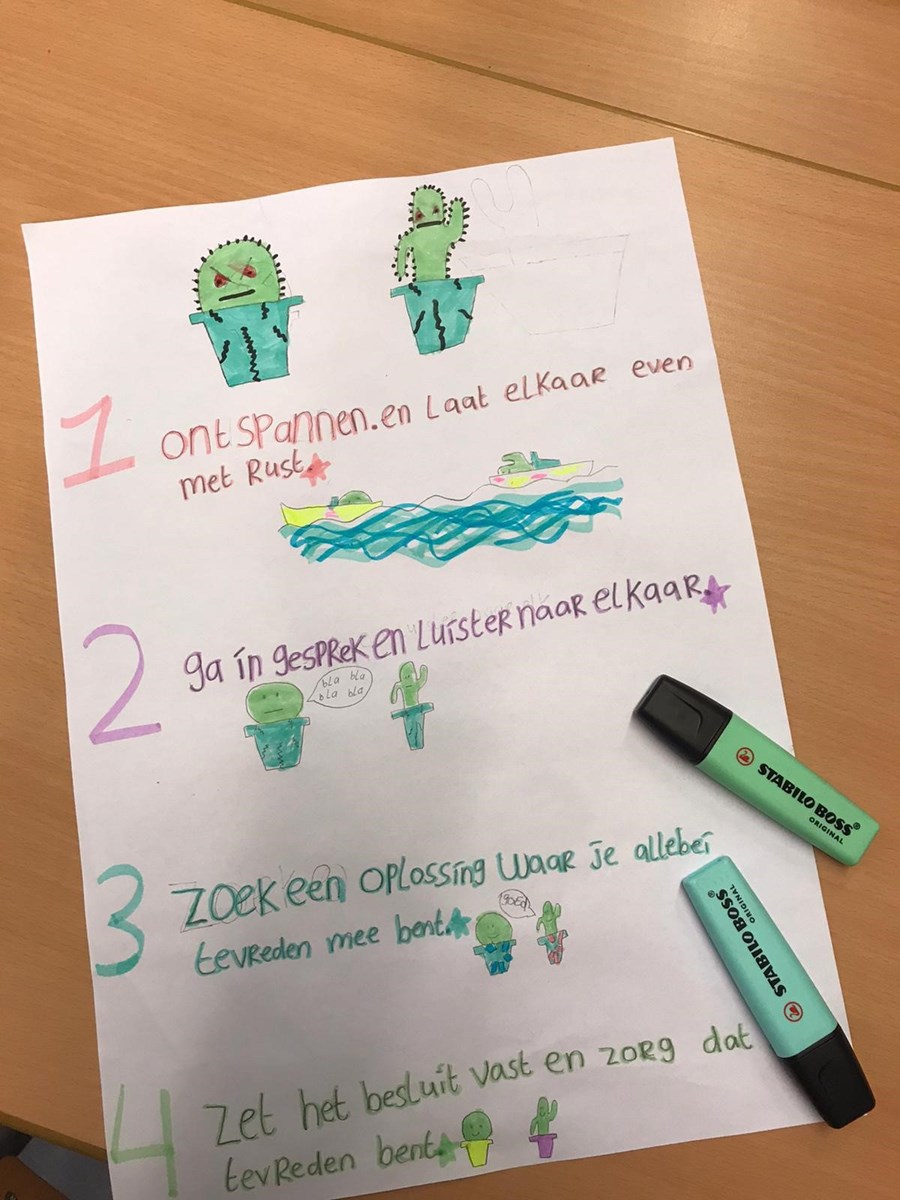 1 ontspannen.en laat elkaar even
met Rust.
2 ga in gesprek en luister naar elkaar.
bla bla
bla bla
3 zoek een oplossing waar je allebei
tevreden mee bent.
goed
4 zet het besluit vast en zorg dat
tevreden bent.
STABILO BOSS®
ORIGINAL
STABILO BOSS®
ORIGINAL